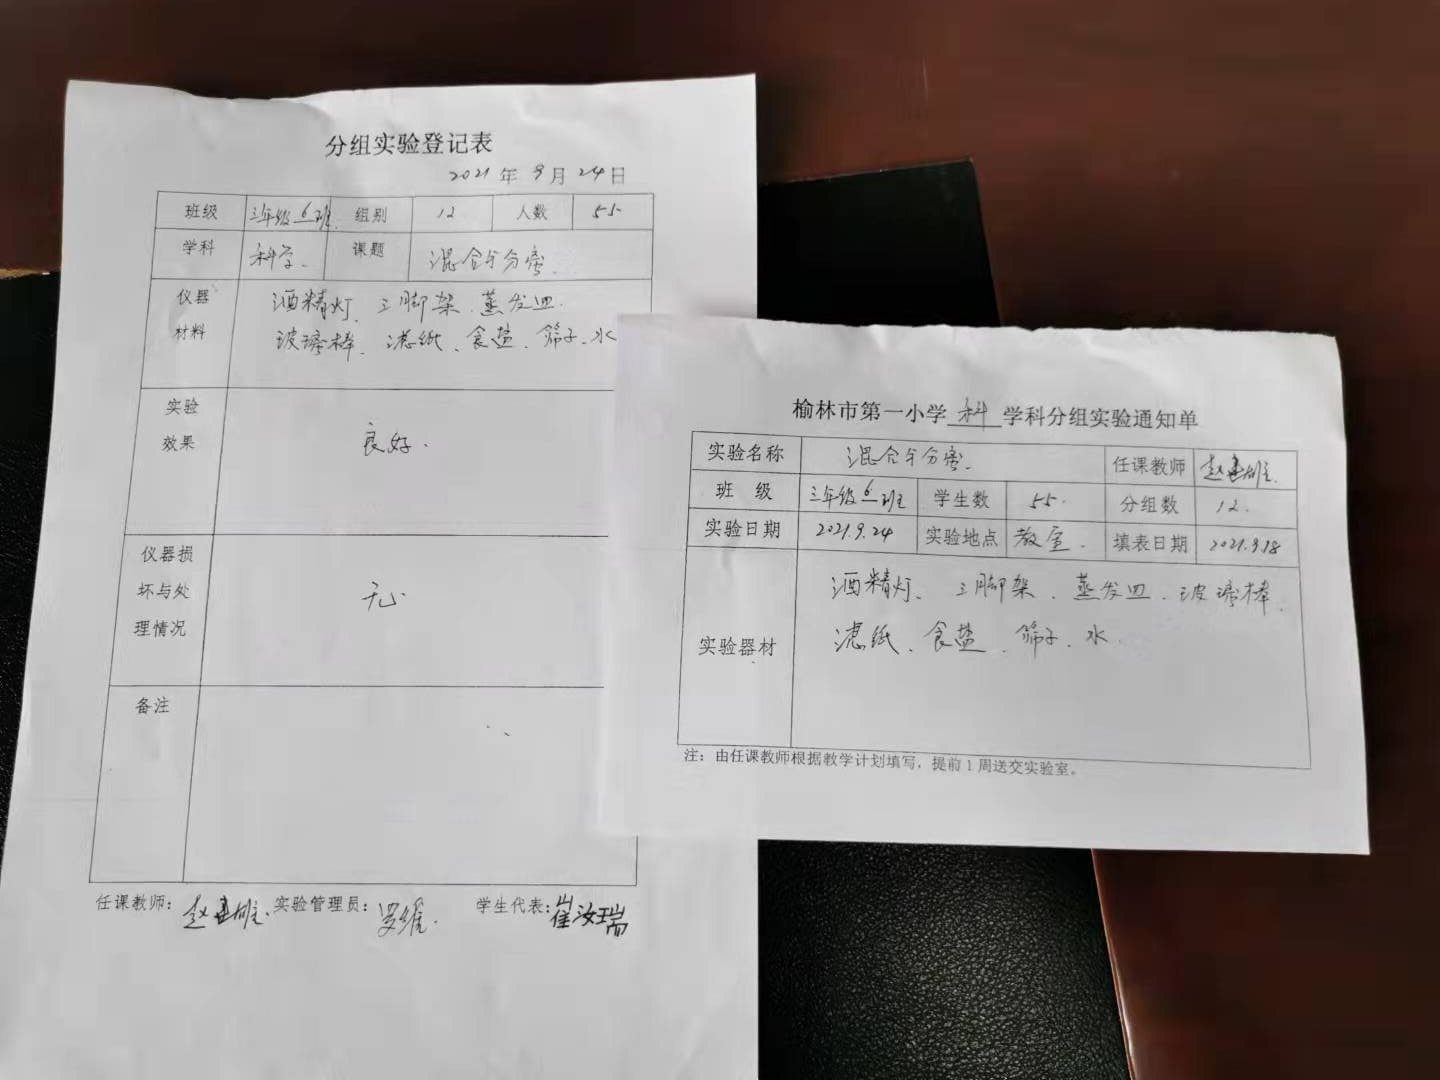 分组实验登记表
2021年9月24日
班级 三年级6班 组别 12 人数 55
学科 科学 课题 混合与分离
仪器材料 酒精灯、三脚架、蒸发皿、
玻璃棒、滤纸、食盐、筛子、水
实验效果 良好.
仪器损坏与处理情况 无
备注
任课教师: 赵 雄 实验管理员: 罗维. 学生代表: 崔汝瑞
榆林市第一小学 科 学科分组实验通知单
实验名称 混合与分离 任课教师 赵 雄
班 级 三年级6班 学生数 55 分组数 12.
实验日期 2021.9.24 实验地点 教室. 填表日期 2021.9.18
实验器材 酒精灯、三脚架、蒸发皿、玻璃棒、
滤纸、食盐、筛子、水
注：由任课教师根据教学计划填写，提前1周送交实验室。